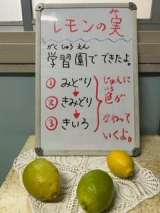 レモンの実
がくしゅうえん
学習園でできたよ。
①みどり
↓
②きみどり
↓
③きいろ
じゅんに
色が
かわって
いくよ。